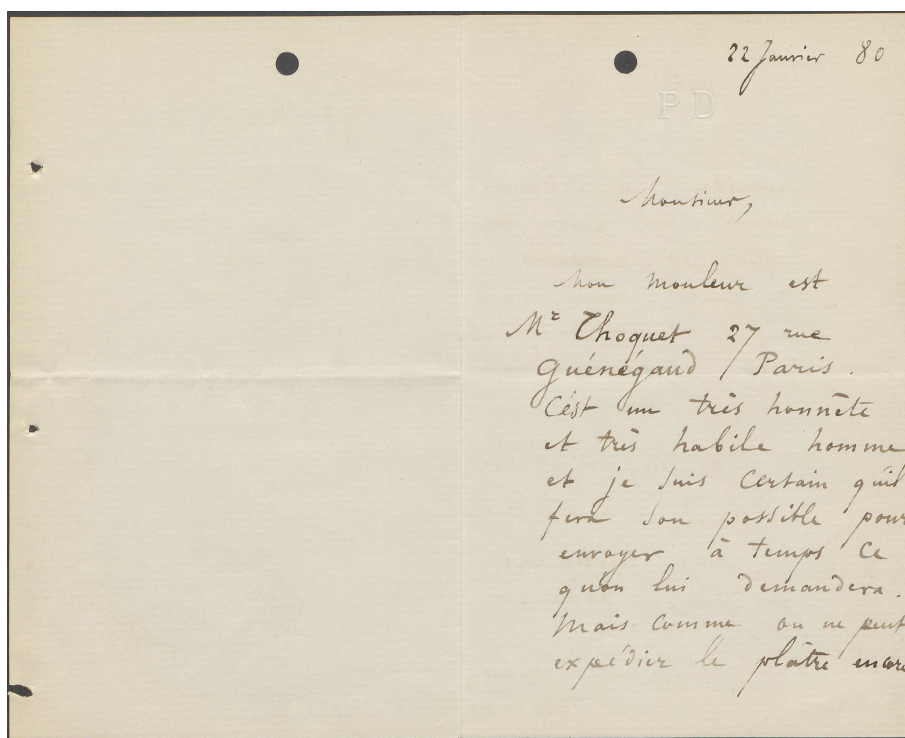 22 Janvier 80
P D
Monsieur,
Mon mouleur est
Mr Thoquet 27 rue
Guénégaud / Paris.
C'est un très honnête
et très habile homme
et je suis certain qu'il
fera son possible pour
envoyer à temps ce
qu'on lui demandera.
Mais comme on ne peut
expédier le plâtre encore